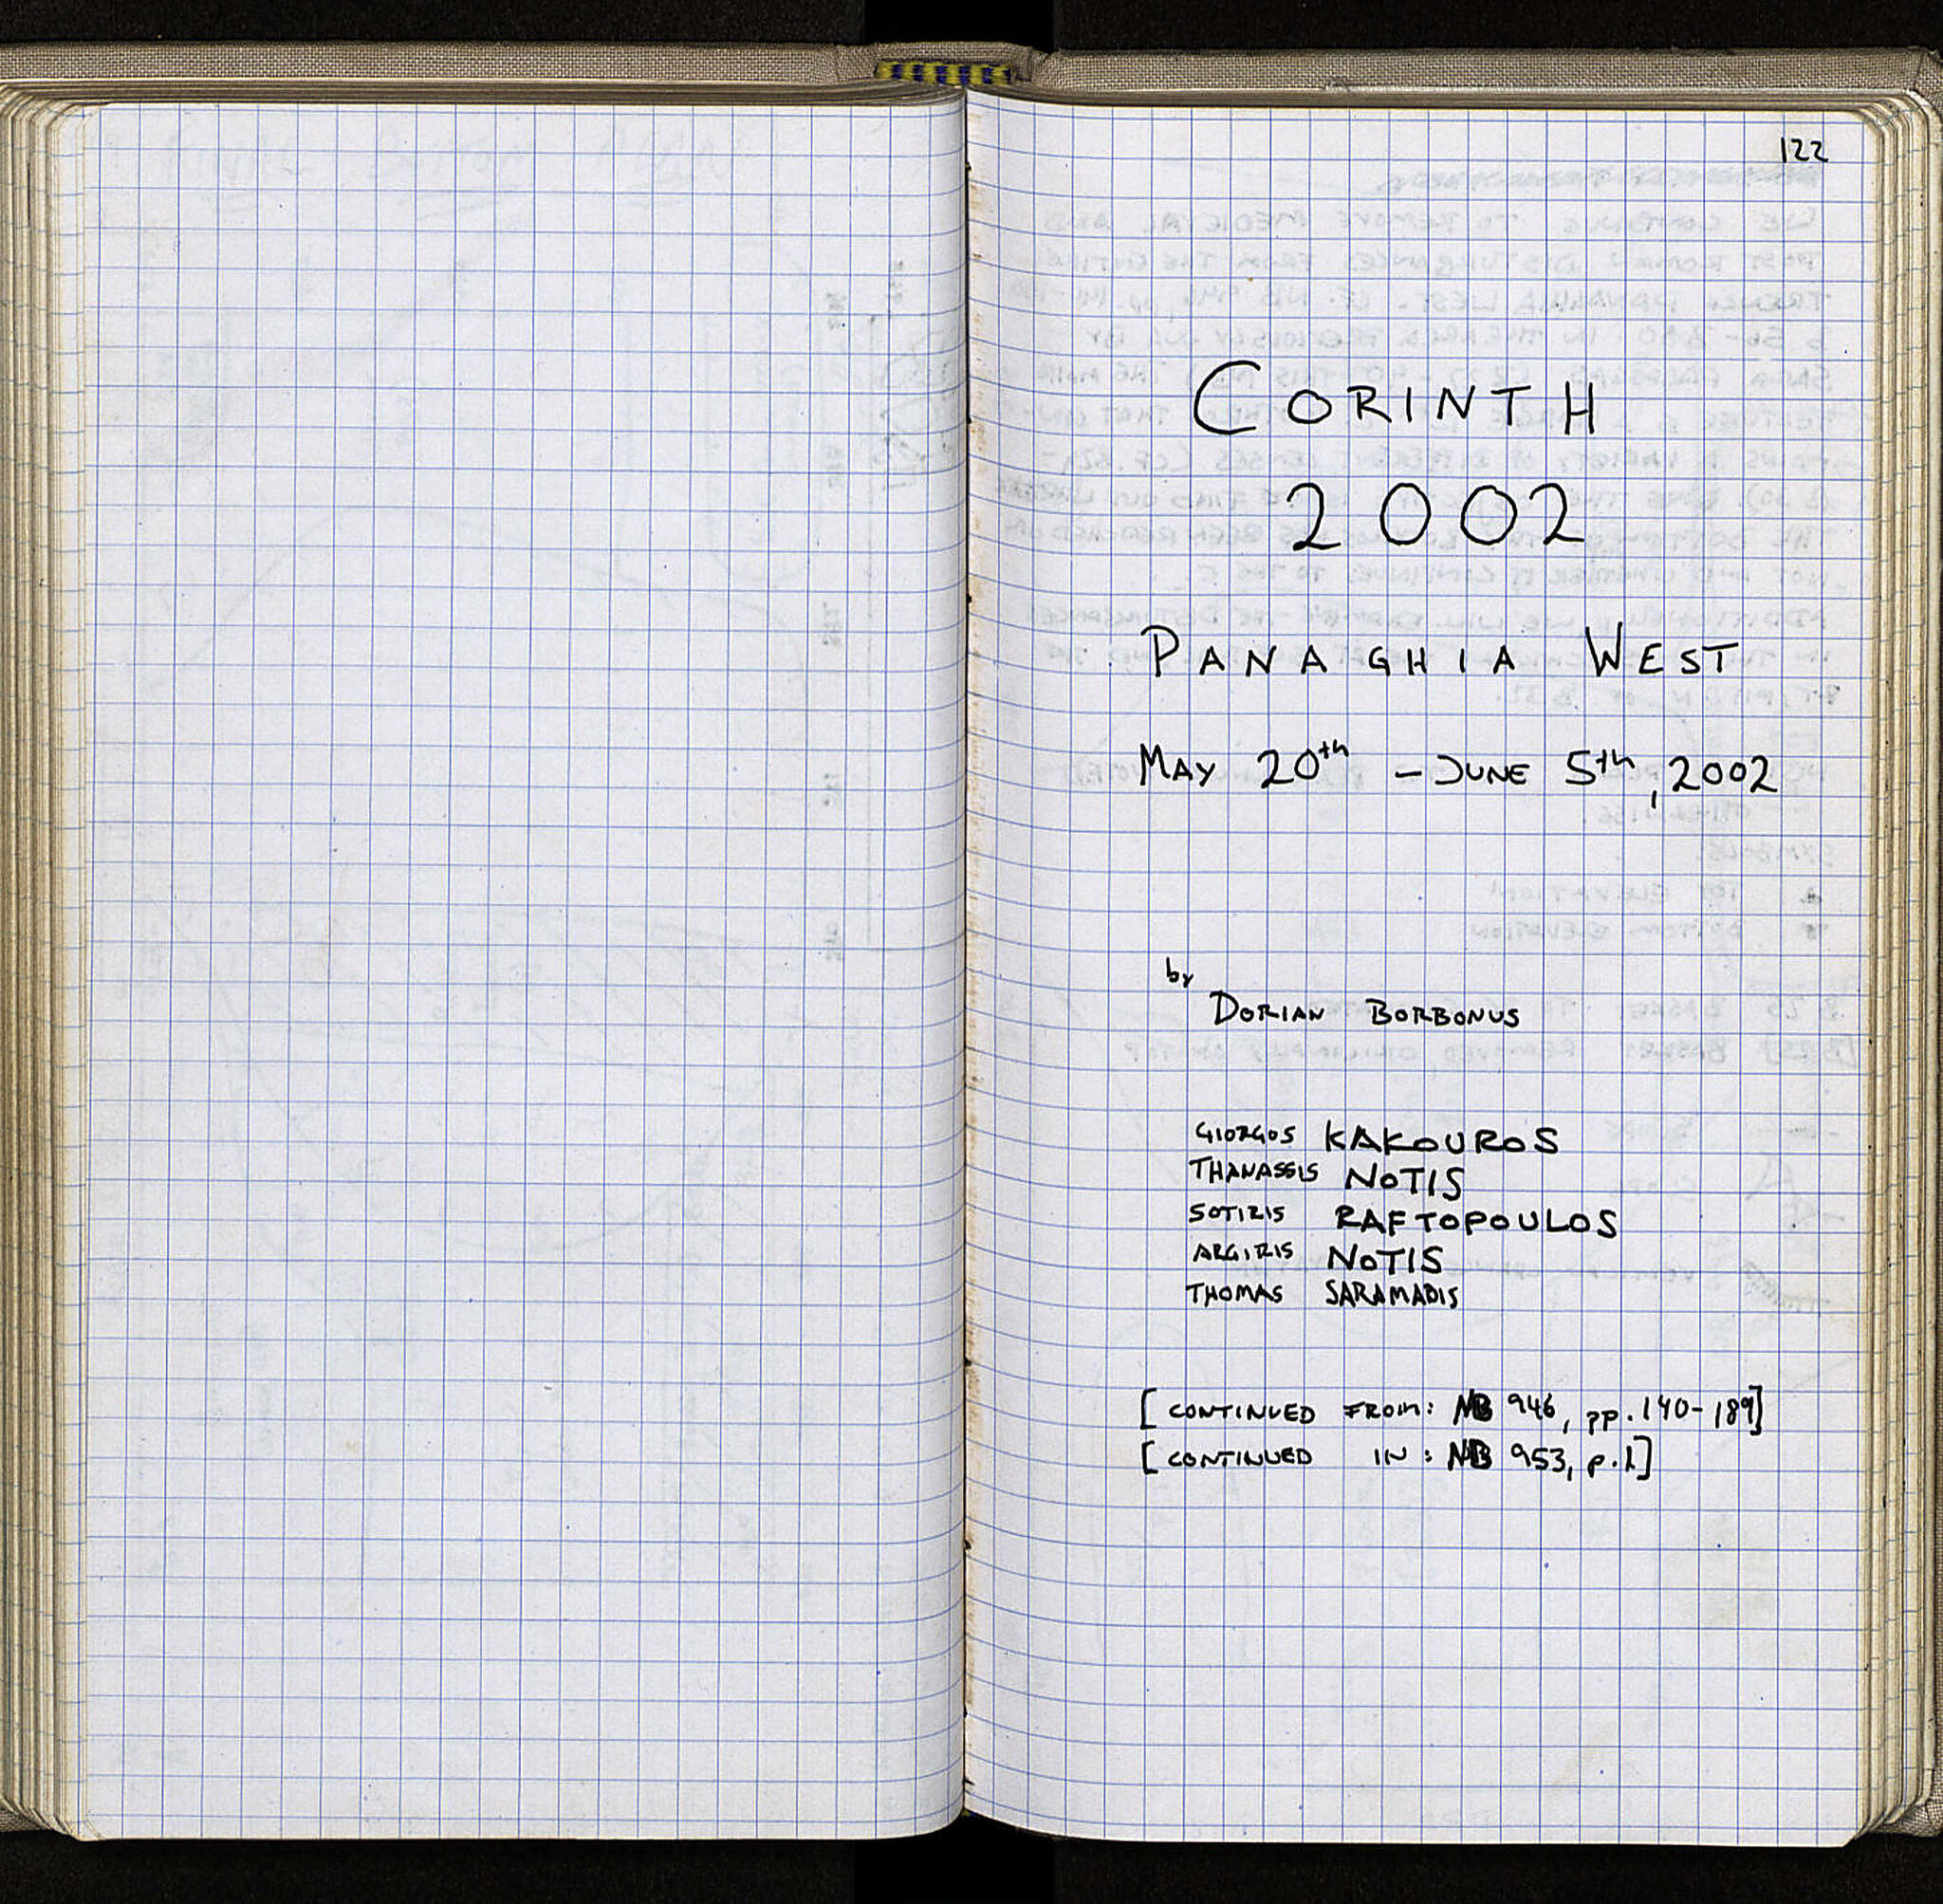 122
CORINTH
2002
PANAGHIA WEST
MAY 20th - JUNE 5th, 2002
by
DORIAN BORBONUS
GIORGOS KAKOUROS
THANASSIS NOTIS
SOTIRIS RAFTOPOULOS
ARGIRIS NOTIS
THOMAS SARAMADIS
[CONTINUED FROM: NB 946, pp. 140-189]
[CONTINUED IN: NB 953, p. 1]